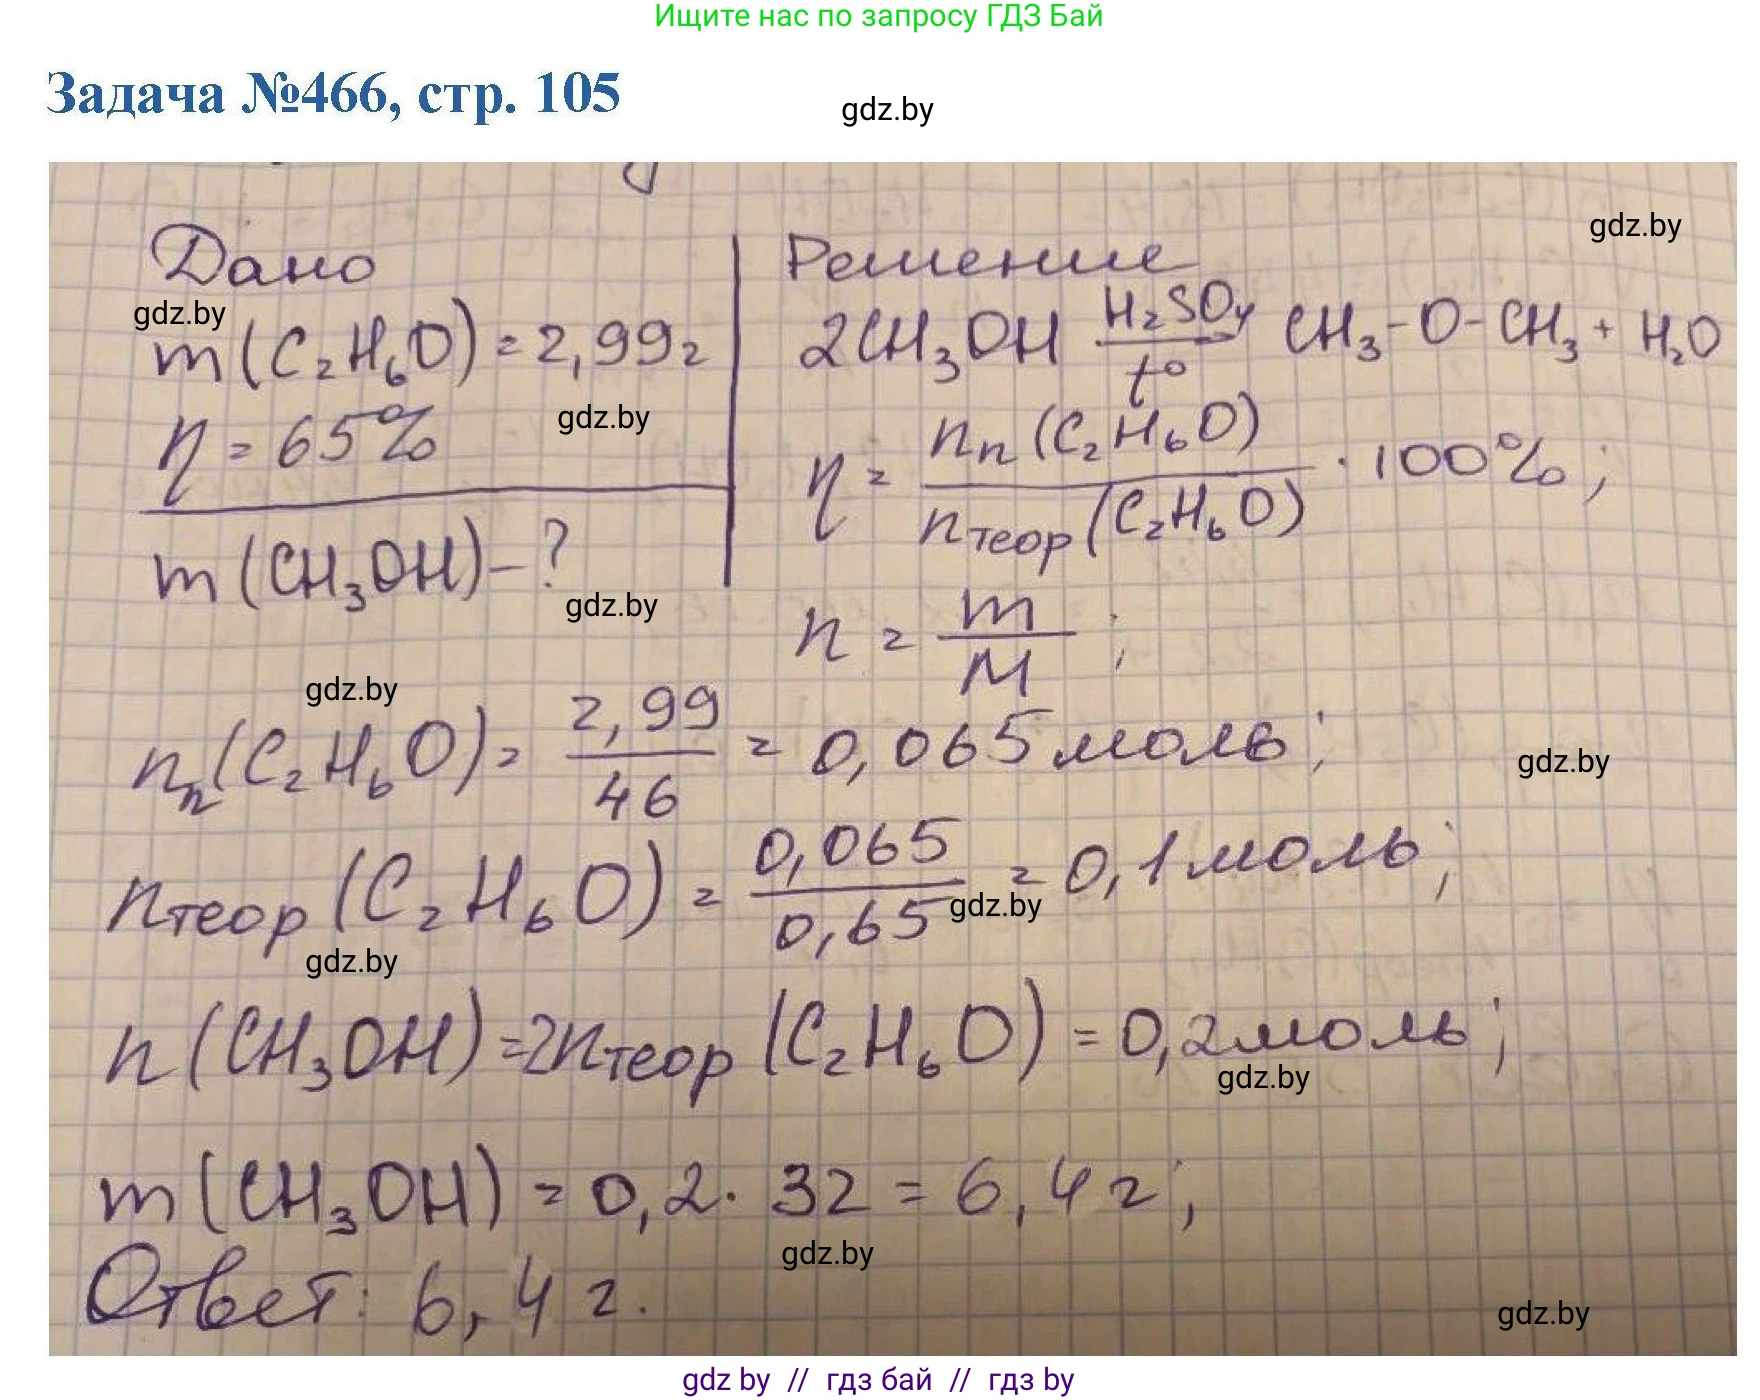 Ищите нас по запросу ГДЗ Бай
Задача №466, стр. 105
gdz.by
Дано
m(C₂H₆O) = 2,99г
η = 65%
m(CH₃OH) - ?
Решение
2CH₃OH H₂SO₄ t° CH₃-O-CH₃ + H₂O
η = nп(C₂H₆O) / nтеор(C₂H₆O) · 100%;
n = m / M;
nп(C₂H₆O) = 2,99 / 46 = 0,065 моль;
nтеор(C₂H₆O) = 0,065 / 0,65 = 0,1 моль;
n(CH₃OH) = 2nтеор(C₂H₆O) = 0,2 моль;
m(CH₃OH) = 0,2 · 32 = 6,4 г;
Ответ: 6,4 г.
gdz.by
gdz.by
gdz.by
gdz.by
gdz.by
gdz.by
gdz.by
gdz.by
gdz.by
gdz.by
gdz.by
gdz.by // гдз бай // гдз by